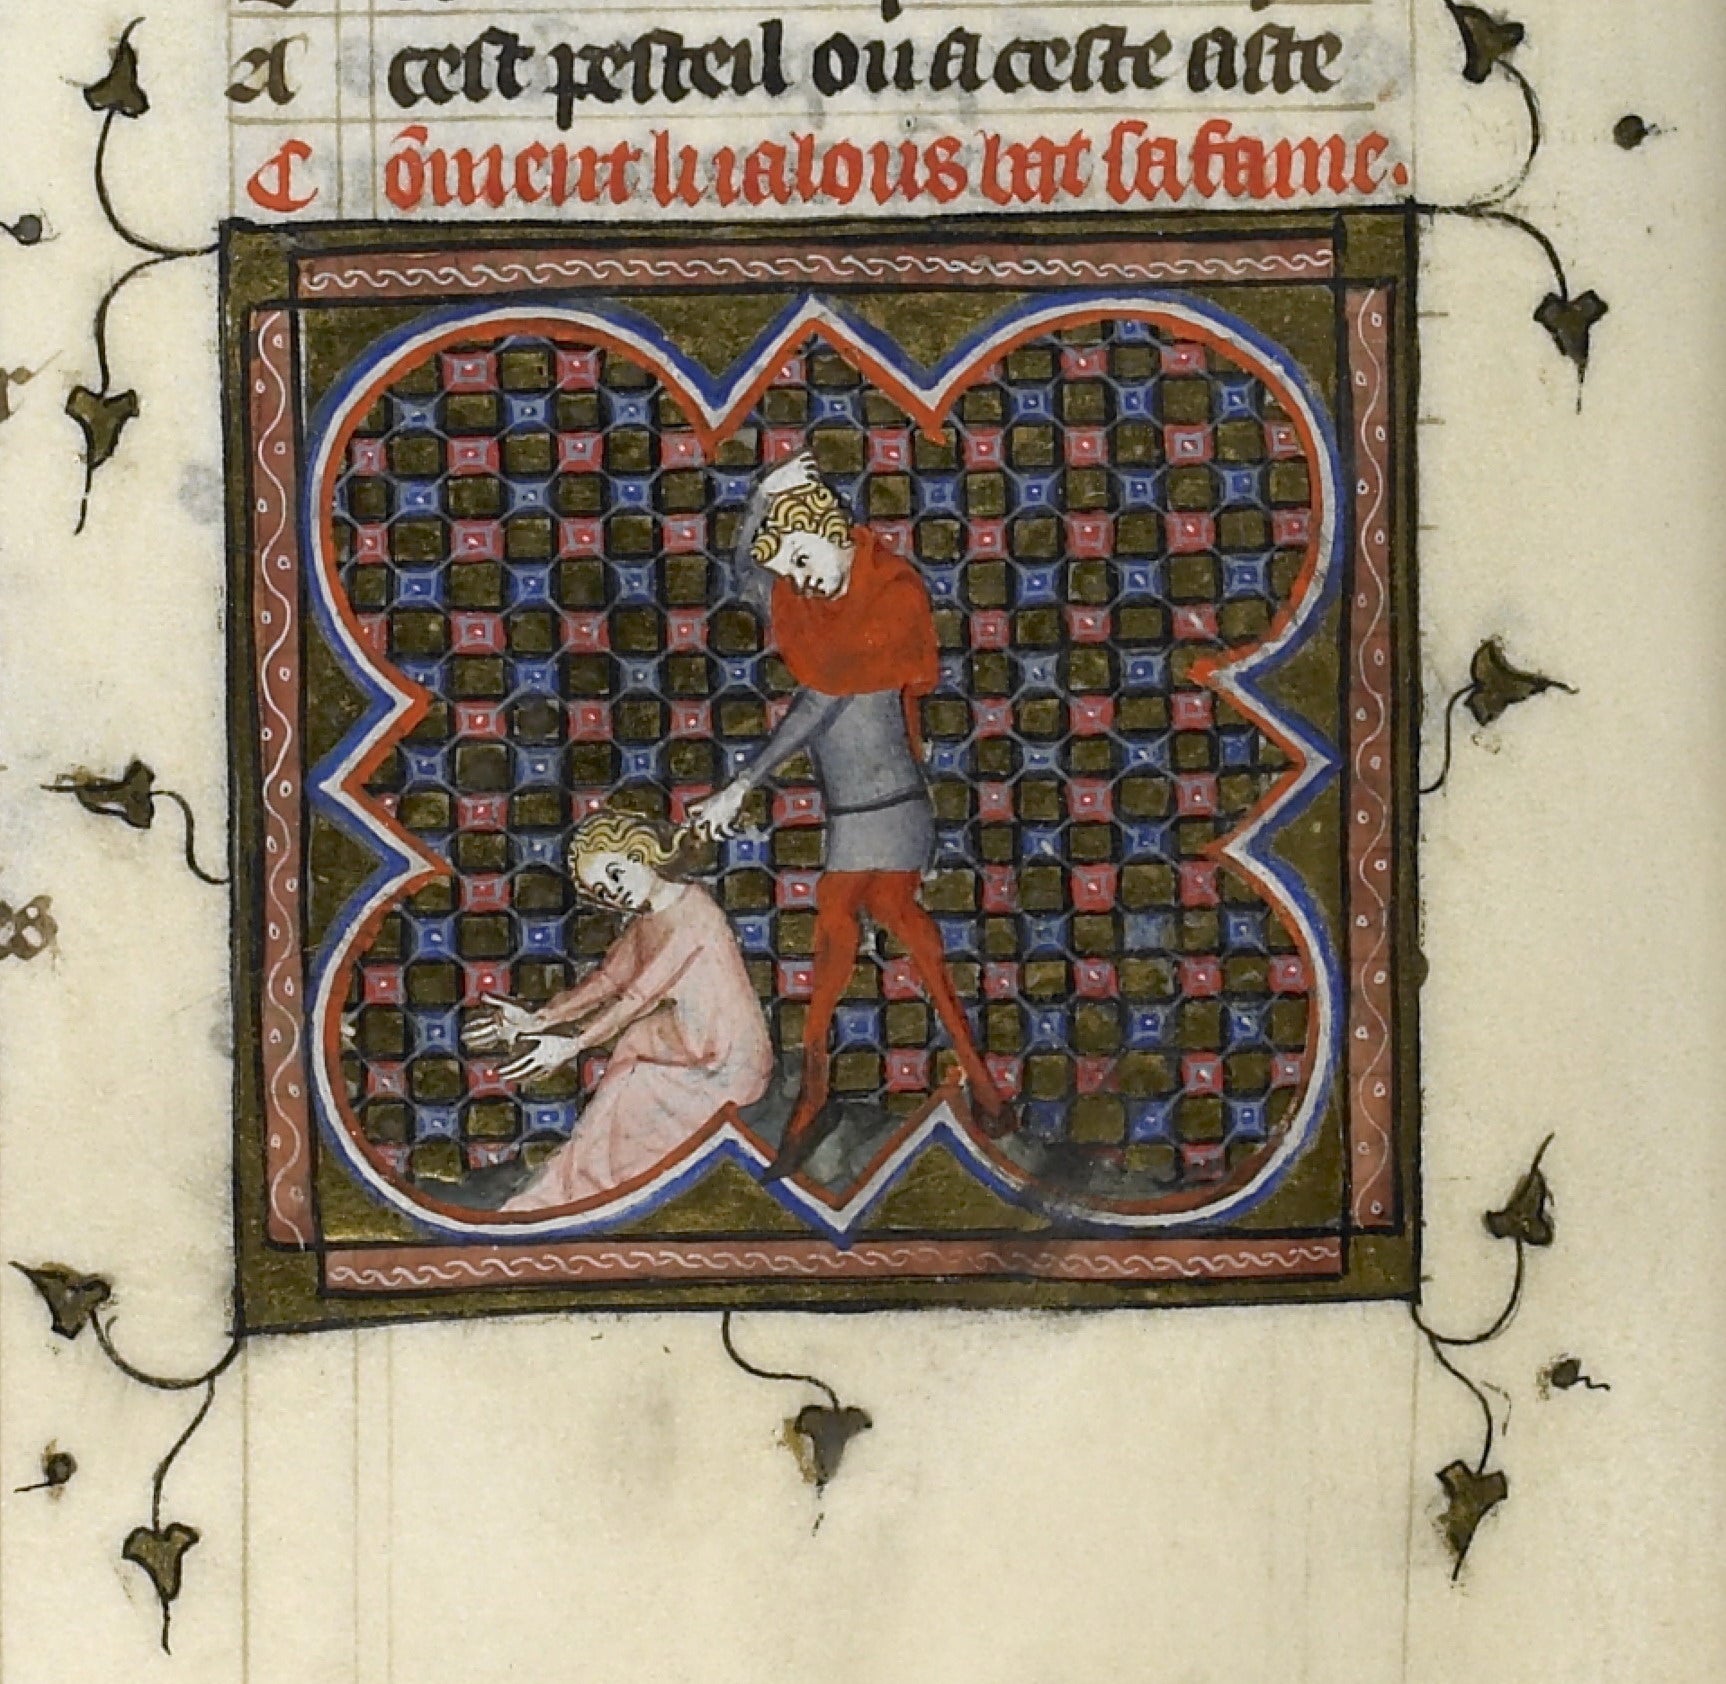 A cest pesteil ou a ceste aste
Cõment li ialous bat sa fame.